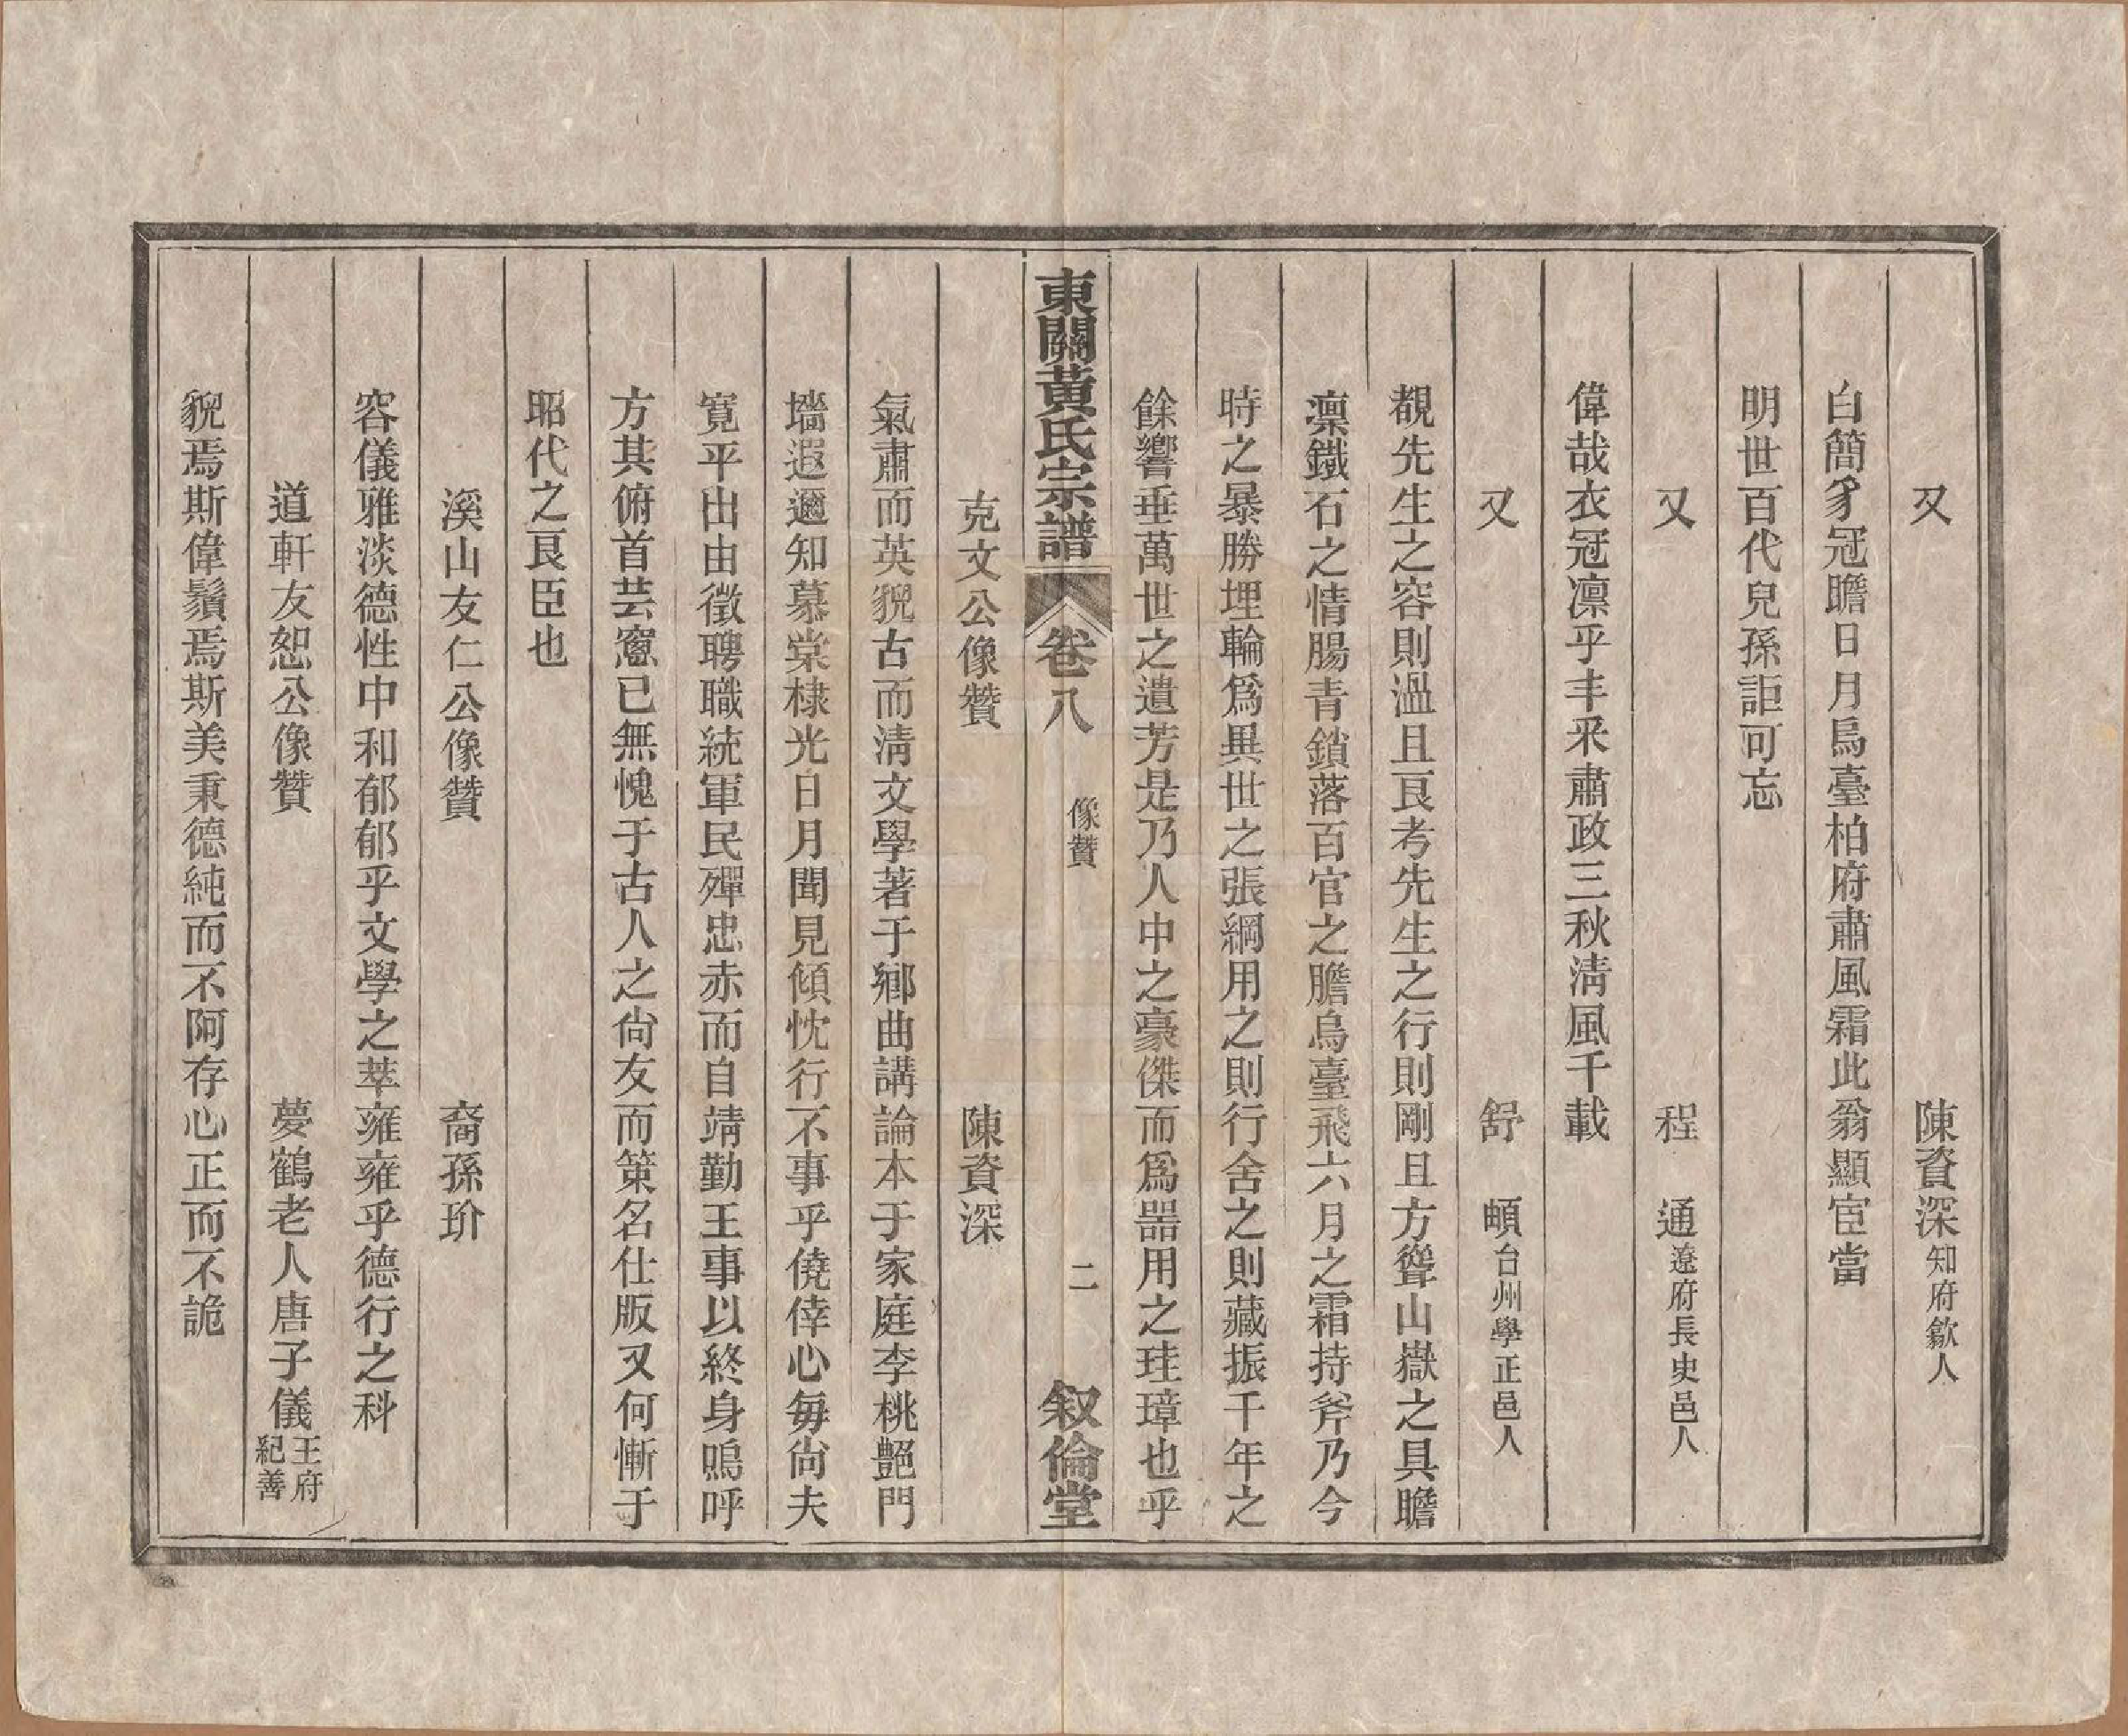 又　陳資深知府歙人
白簡豸冠瞻日月烏臺柏府肅風霜此翁顯宦當
明世百代兒孫詎可忘
又　程　通遼府長史邑人
偉哉衣冠凛乎丰采肅政三秋淸風千載
又　舒　頔台州學正邑人
覩先生之容則溫且良考先生之行則剛且方聳山嶽之具瞻
凛鐵石之情腸青鎖落百官之膽烏臺飛六月之霜持斧乃今
時之暴勝埋輪爲異世之張綱用之則行舍之則藏振千年之
餘響垂萬世之遺芳是乃人中之豪傑而爲噐用之珪璋也乎
東關黃氏宗譜　卷八　像贊　二　叙倫堂
克文公像贊　陳資深
氣肅而英貌古而淸文學著于鄕曲講論本于家庭李桃艶門
墻遐邇知慕棠棣光日月聞見傾忱行不事乎僥倖心每尙夫
寬平出由徵聘職統軍民殫忠赤而自靖勤王事以終身嗚呼
方其俯首芸窓已無愧于古人之尙友而策名仕版又何慚于
昭代之良臣也
溪山友仁公像贊　裔孫玠
容儀雅淡德性中和郁郁乎文學之萃雍雍乎德行之科
道軒友恕公像贊　夢鶴老人唐子儀王府紀善
貌焉斯偉鬚焉斯美秉德純而不阿存心正而不詭